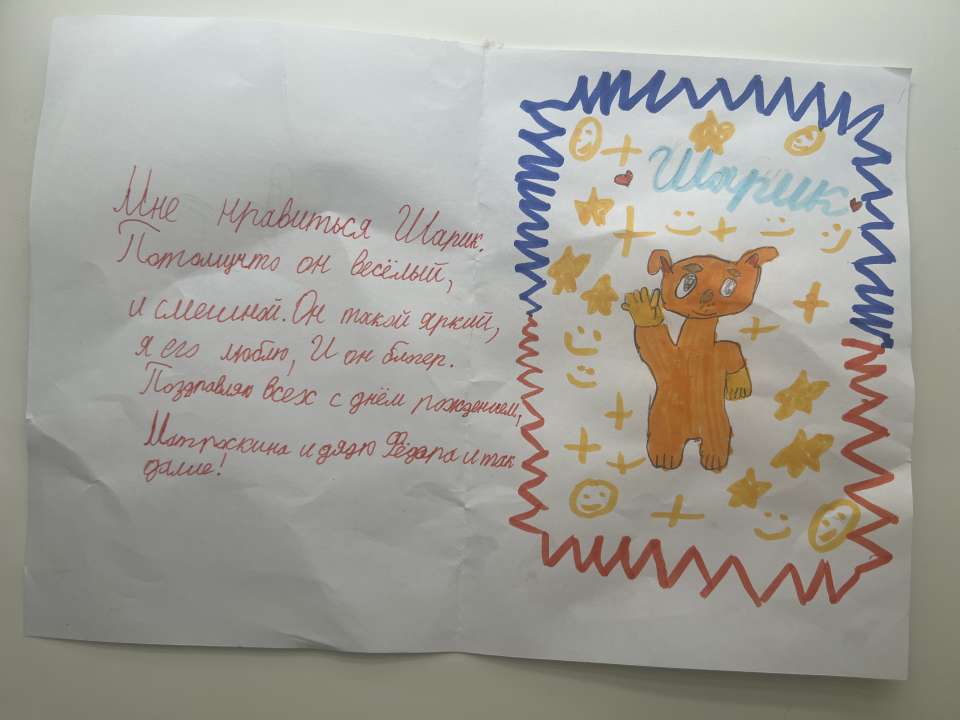 Мне нравиться Шарик.
Потомучто он весёлый,
и смешной. Он такой яркий,
я его люблю, И он блогер.
Поздравляю всех с днём рождением,
Матроскина и дядю Фёдора и так
далие!
Шарик